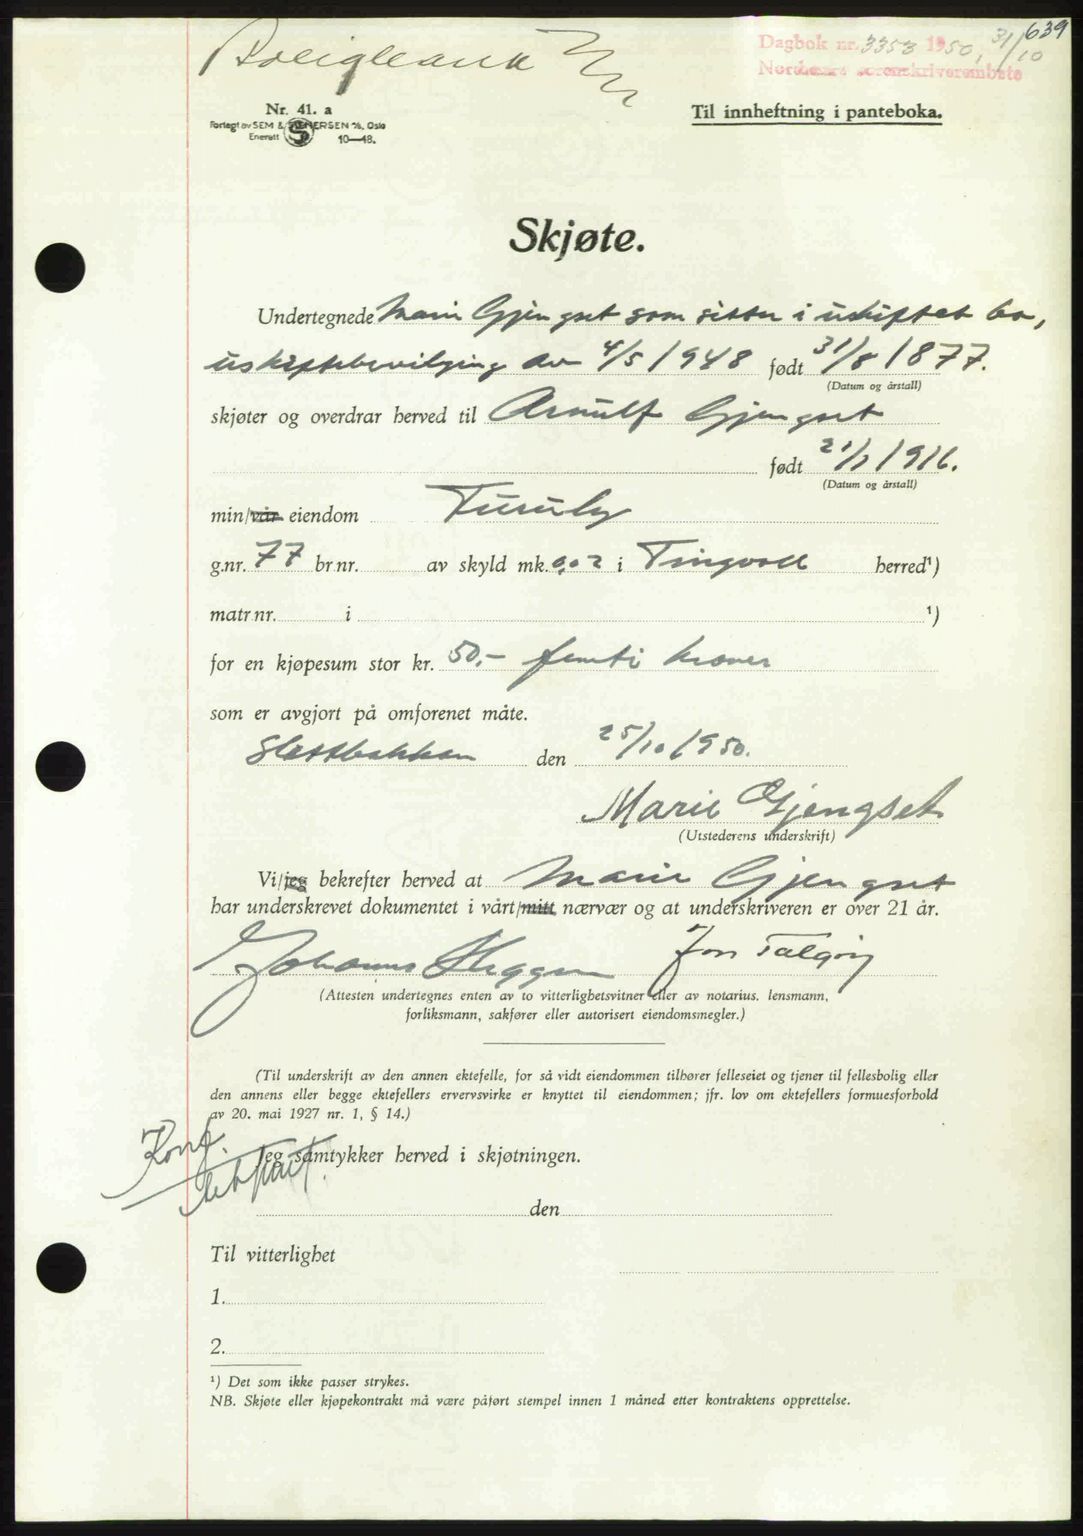 639
Dagbok nr. 3353 1950, 31/10
Nordmøre sorenskriverembete
Nr. 41. a
Forlagt av SEM & STENERSEN A/S, Oslo
Enerett 10—48.
Til innheftning i panteboka.
Skjøte.
Undertegnede Marie Gjengset som sitter i uskiftet bo,
uskiftebevilging av 4/5 1948 født 31/8 1877.
(Datum og årstall)
skjøter og overdrar herved til Arnulf Gjengset
født 21/1 1916.
(Datum og årstall)
min/vår eiendom Furuly
g.nr. 77 br nr. av skyld mk. 0,02 i Tingvoll herred¹)
matr nr. i ¹)
for en kjøpesum stor kr. 50,- femti kroner
som er avgjort på omforenet måte.
den 25/10 1950.
Marie Gjengset
(Utstederens underskrift)
Vi/jeg bekrefter herved at Marie Gjengset
har underskrevet dokumentet i vårt/mitt nærvær og at underskriveren er over 21 år.
Johannes Heggem Jon Talgøy
(Attesten undertegnes enten av to vitterlighetsvitner eller av notarius, lensmann,
forliksmann, sakfører eller autorisert eiendomsmegler.)
(Til underskrift av den annen ektefelle, for så vidt eiendommen tilhører felleseiet og tjener til fellesbolig eller
den annens eller begge ektefellers ervervsvirke er knyttet til eiendommen; jfr. lov om ektefellers formuesforhold
av 20. mai 1927 nr. 1, § 14.)
Konf.
Jeg samtykker herved i skjøtningen.
den
Til vitterlighet
1.
2.
¹) Det som ikke passer strykes.
NB. Skjøte eller kjøpekontrakt må være påført stempel innen 1 måned etter kontraktens opprettelse.